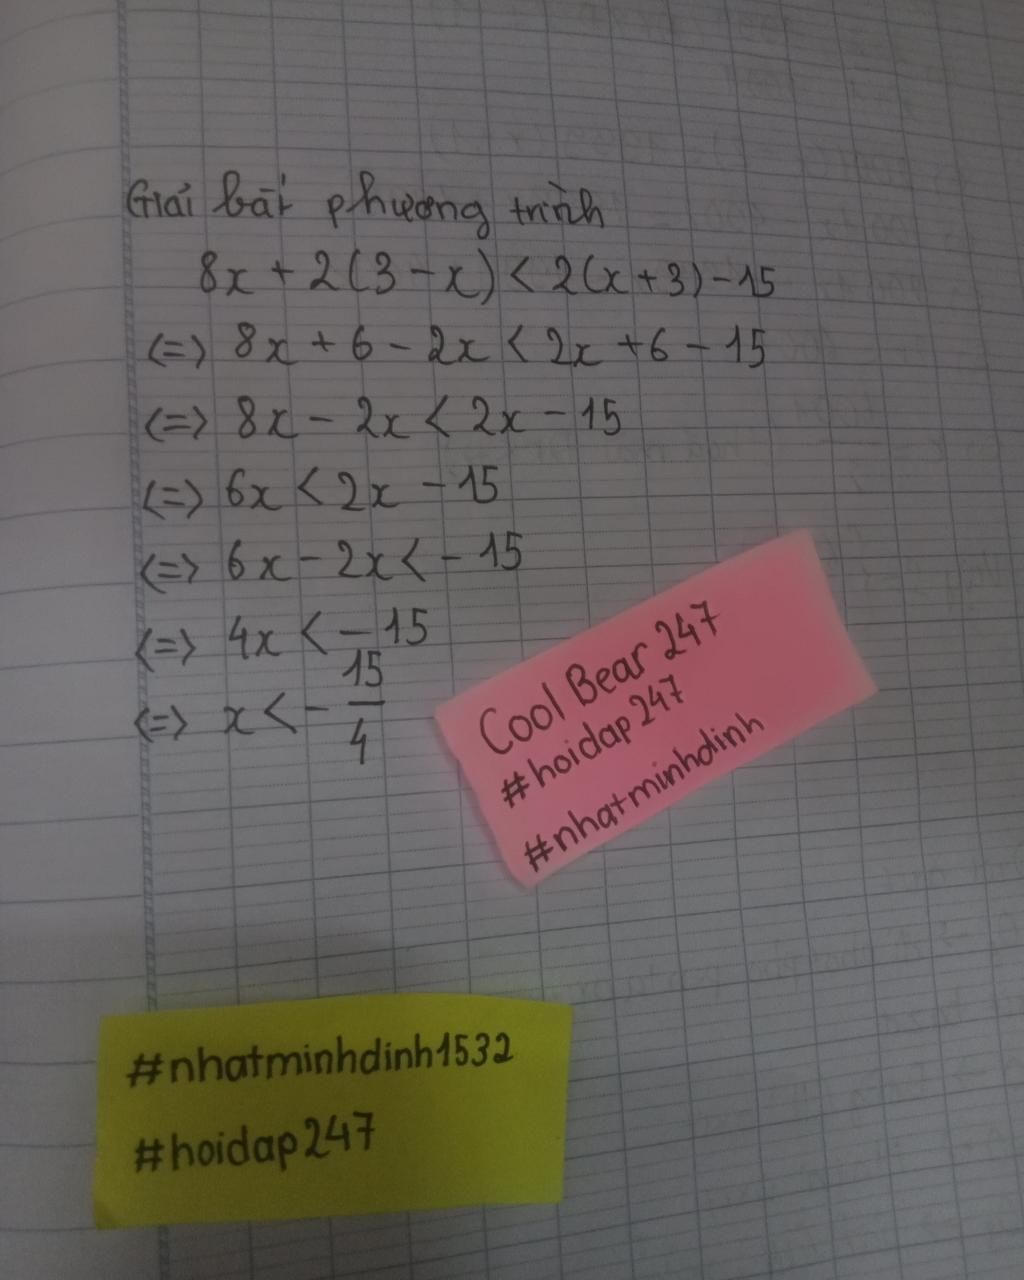 Giải bất phương trình
8x + 2(3 - x) < 2(x + 3) - 15
<=> 8x + 6 - 2x < 2x + 6 - 15
<=> 8x - 2x < 2x - 15
<=> 6x < 2x - 15
<=> 6x - 2x < - 15
<=> 4x < - 15
<=> x < - 15/4
Cool Bear 247
#hoidap 247
#nhatminhdinh
#nhatminhdinh1532
#hoidap 247